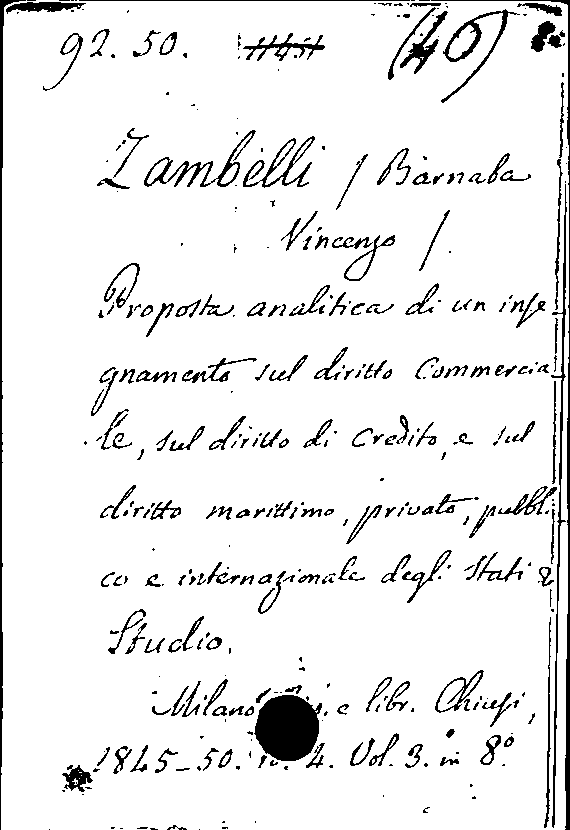 92. 50. 11451 (40)
Zambelli / Barnaba
Vincenzo /.
Proposta analitica di un inse-
gnamento sul diritto Commercia-
le, sul diritto di Credito, e sul
diritto marittimo, privato, pubbli-
co e internazionale degli Stati &
Studio.
Milano e libr. Chiusi,
1845-50. 4. Vol. 3. in 8°.